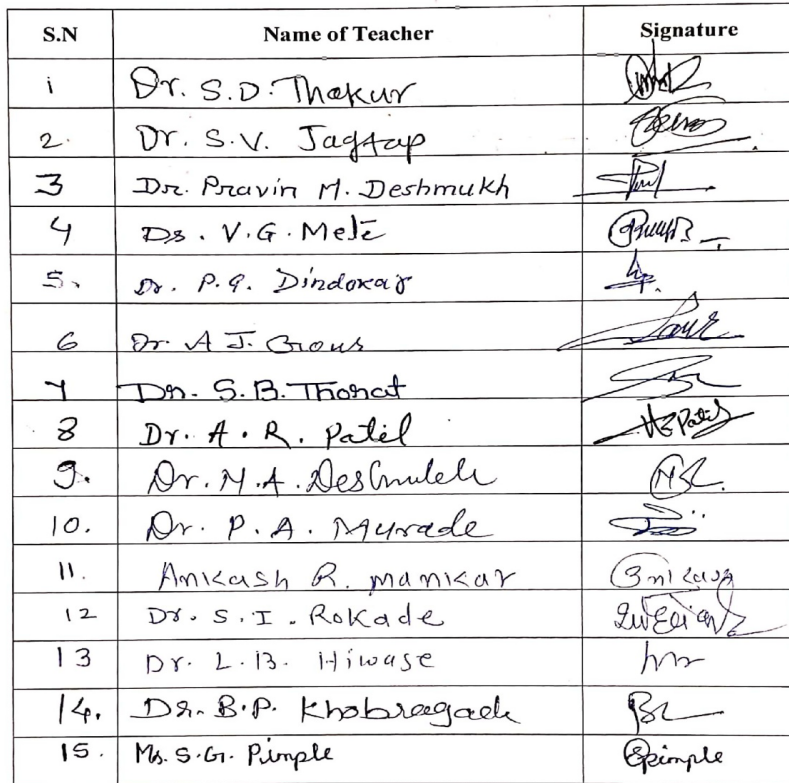 S.N Name of Teacher Signature
1 Dr. S.D. Thakur
2. Dr. S.V. Jagtap
3 Dr. Pravin M. Deshmukh
4 Dr. V.G. Mete
5. Dr. P.G. Dindokar
6 Dr. A J. Gour
7 Dr. S.B. Thorat
8 Dr. A. R. Patil
9. Dr. M.A. Deshmukh
10. Dr. P. A. Murade
11. Ankash R. Mankar
12 Dr. S. I. Rokade
13 Dr. L.B. Hiwase
14. Dr. B.P. Khobragade
15. Ms. S.G. Pimple Spimple